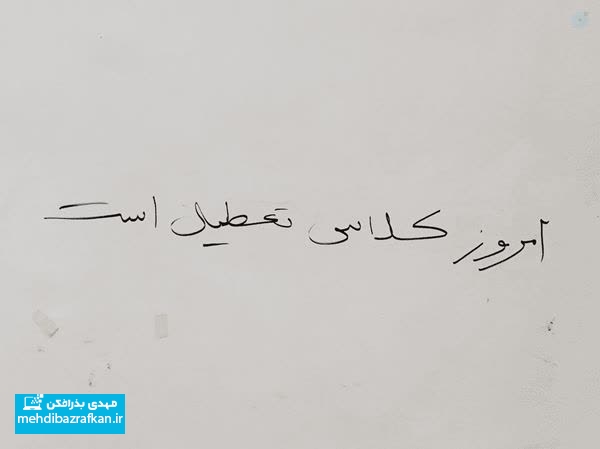 امروز کلاس تعطیل است
مهدی بذرافکن
mehdibazrafkan.ir